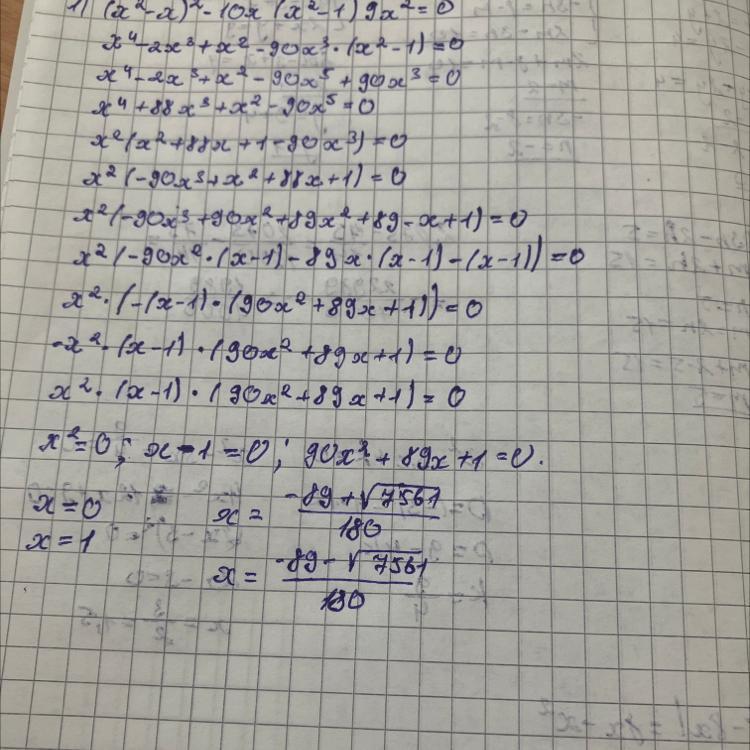 1) (x²-x)² - 10x (x²-1) 9x² = 0
x⁴ - 2x³ + x² - 90x³ · (x² - 1) = 0
x⁴ - 2x³ + x² - 90x⁵ + 90x³ = 0
x⁴ + 88x³ + x² - 90x⁵ = 0
x² (x² + 88x + 1 - 90x³) = 0
x² (-90x³ + x² + 88x + 1) = 0
x² (-90x³ + 90x² + 89x² + 89 - x + 1) = 0
x² (-90x² · (x-1) - 89x · (x-1) - (x-1)) = 0
x² · (-(x-1) · (90x² + 89x + 1)) = 0
-x² · (x-1) · (90x² + 89x + 1) = 0
x² · (x-1) · (90x² + 89x + 1) = 0
x² = 0; x - 1 = 0; 90x² + 89x + 1 = 0.
x = 0 x = (-89 + √7561)/180
x = 1 x = (-89 - √7561)/180